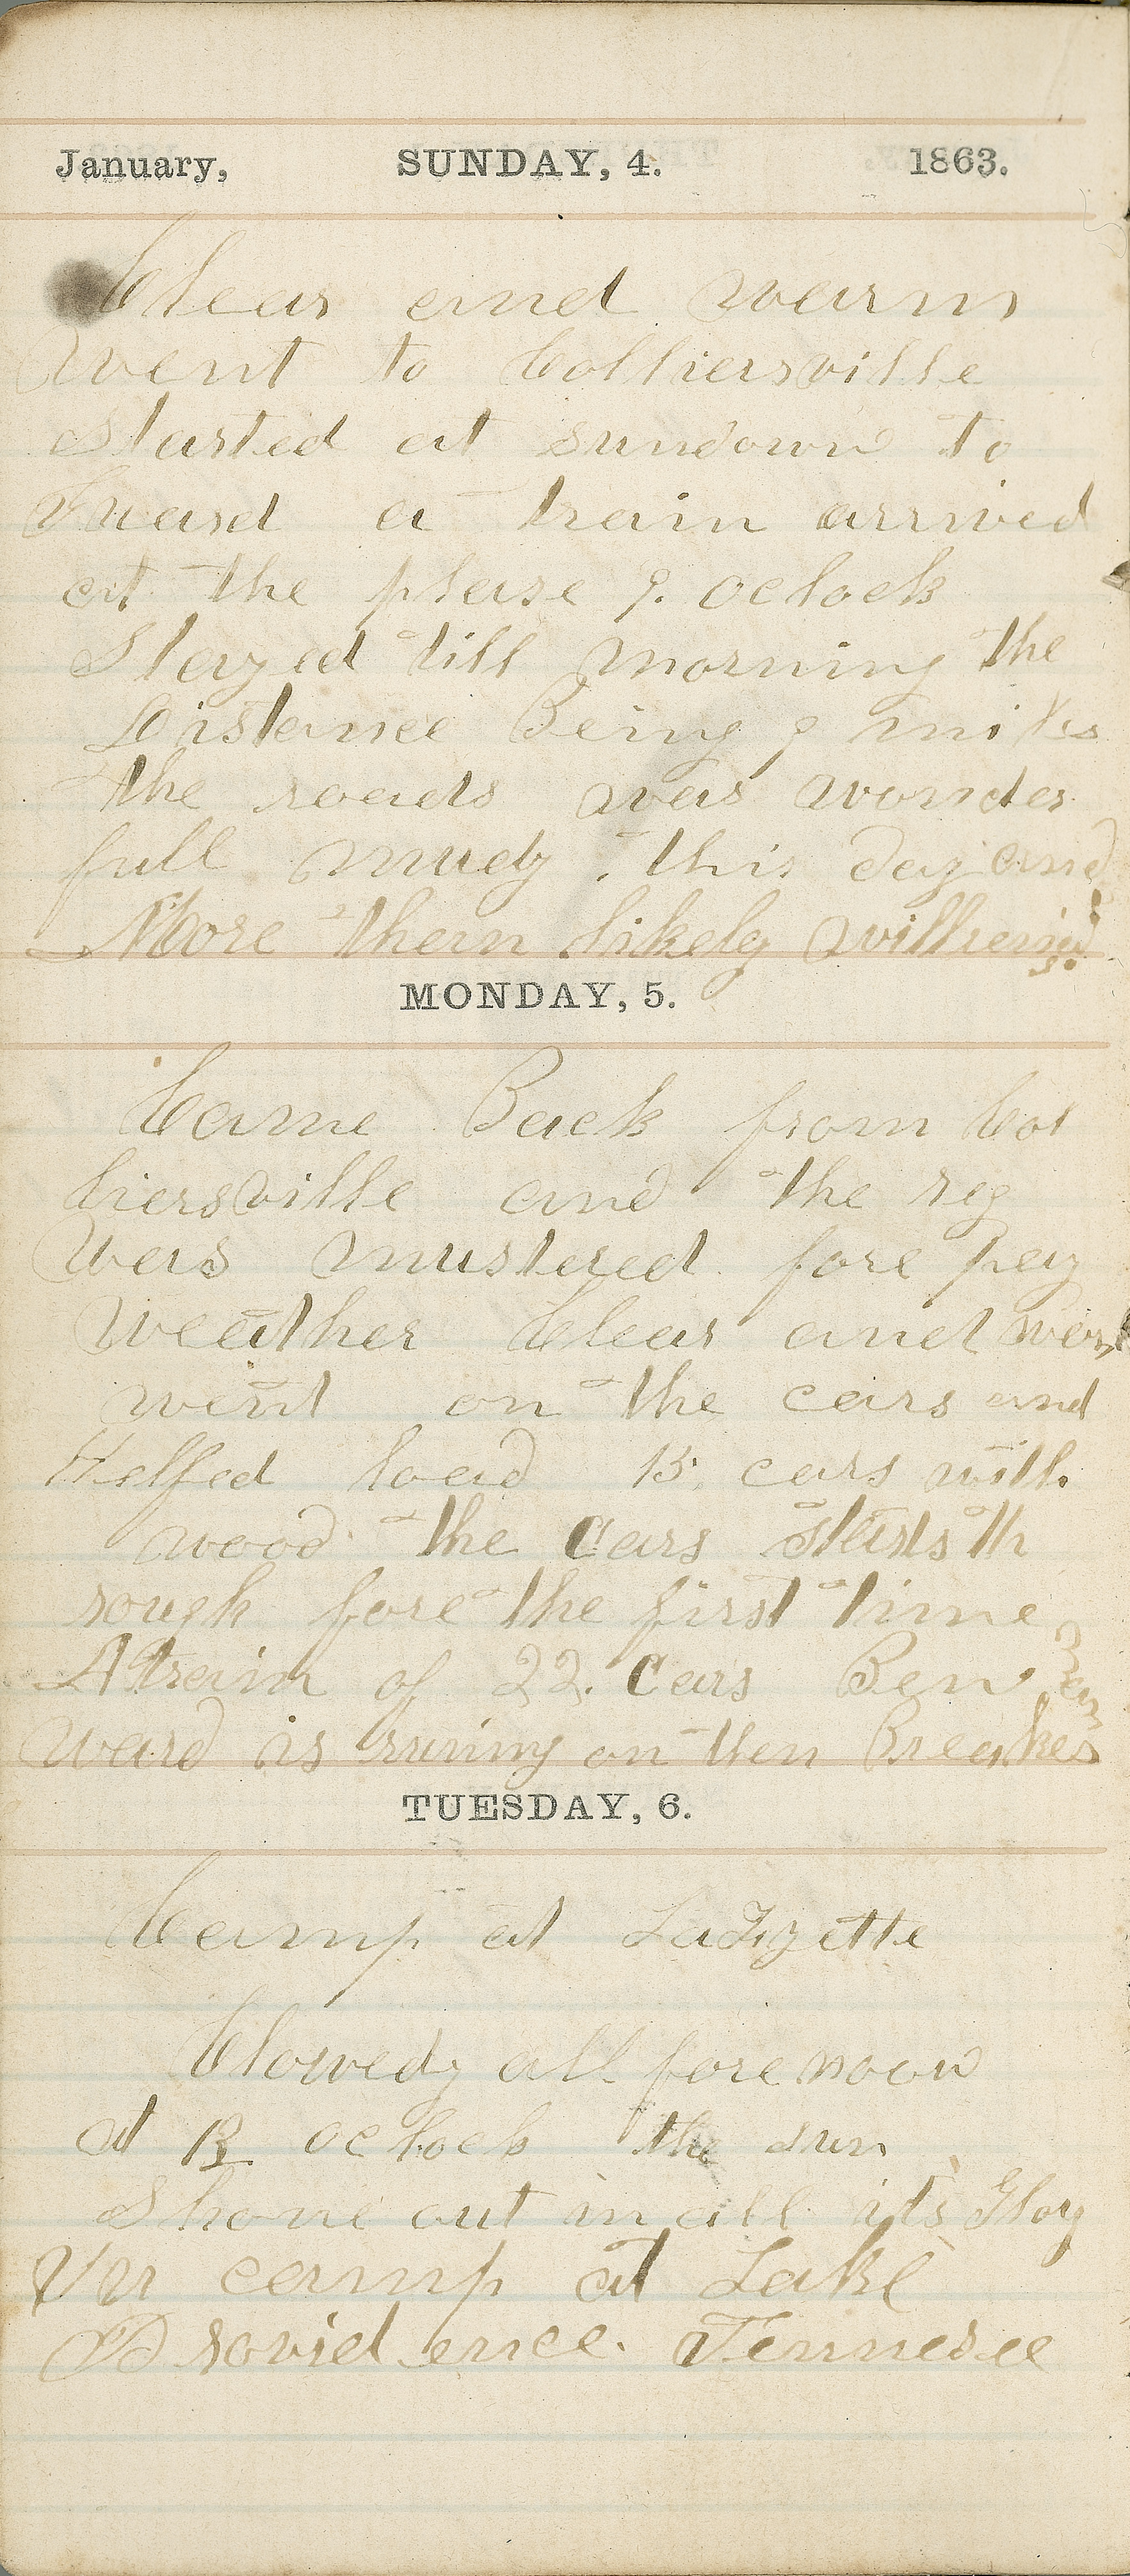 January, SUNDAY, 4. 1863.
Clear and warm
Went to Colliersville
Started at sundown to
Guard a train arrived
at the plase 9. oclock
Stayed till morning the
Distance Being 9 miles
the roads was wonder
full mudy. this day and
More then likely will
MONDAY, 5.
Came Back from Col
liersville and the reg
Was mustered fore pay
Weather Clear and
went on the cars and
Helped load 15. cars with
wood the Cars starts th
rough fore the first time
A train of 22. Cars Ben
ward is runing on then Breakes
TUESDAY, 6.
Camp at LaFayette
Clowedy all fore noon
at 12 oclock the sun
Shone out in all its Gloy
In camp at Lake
Providence. Tennesee